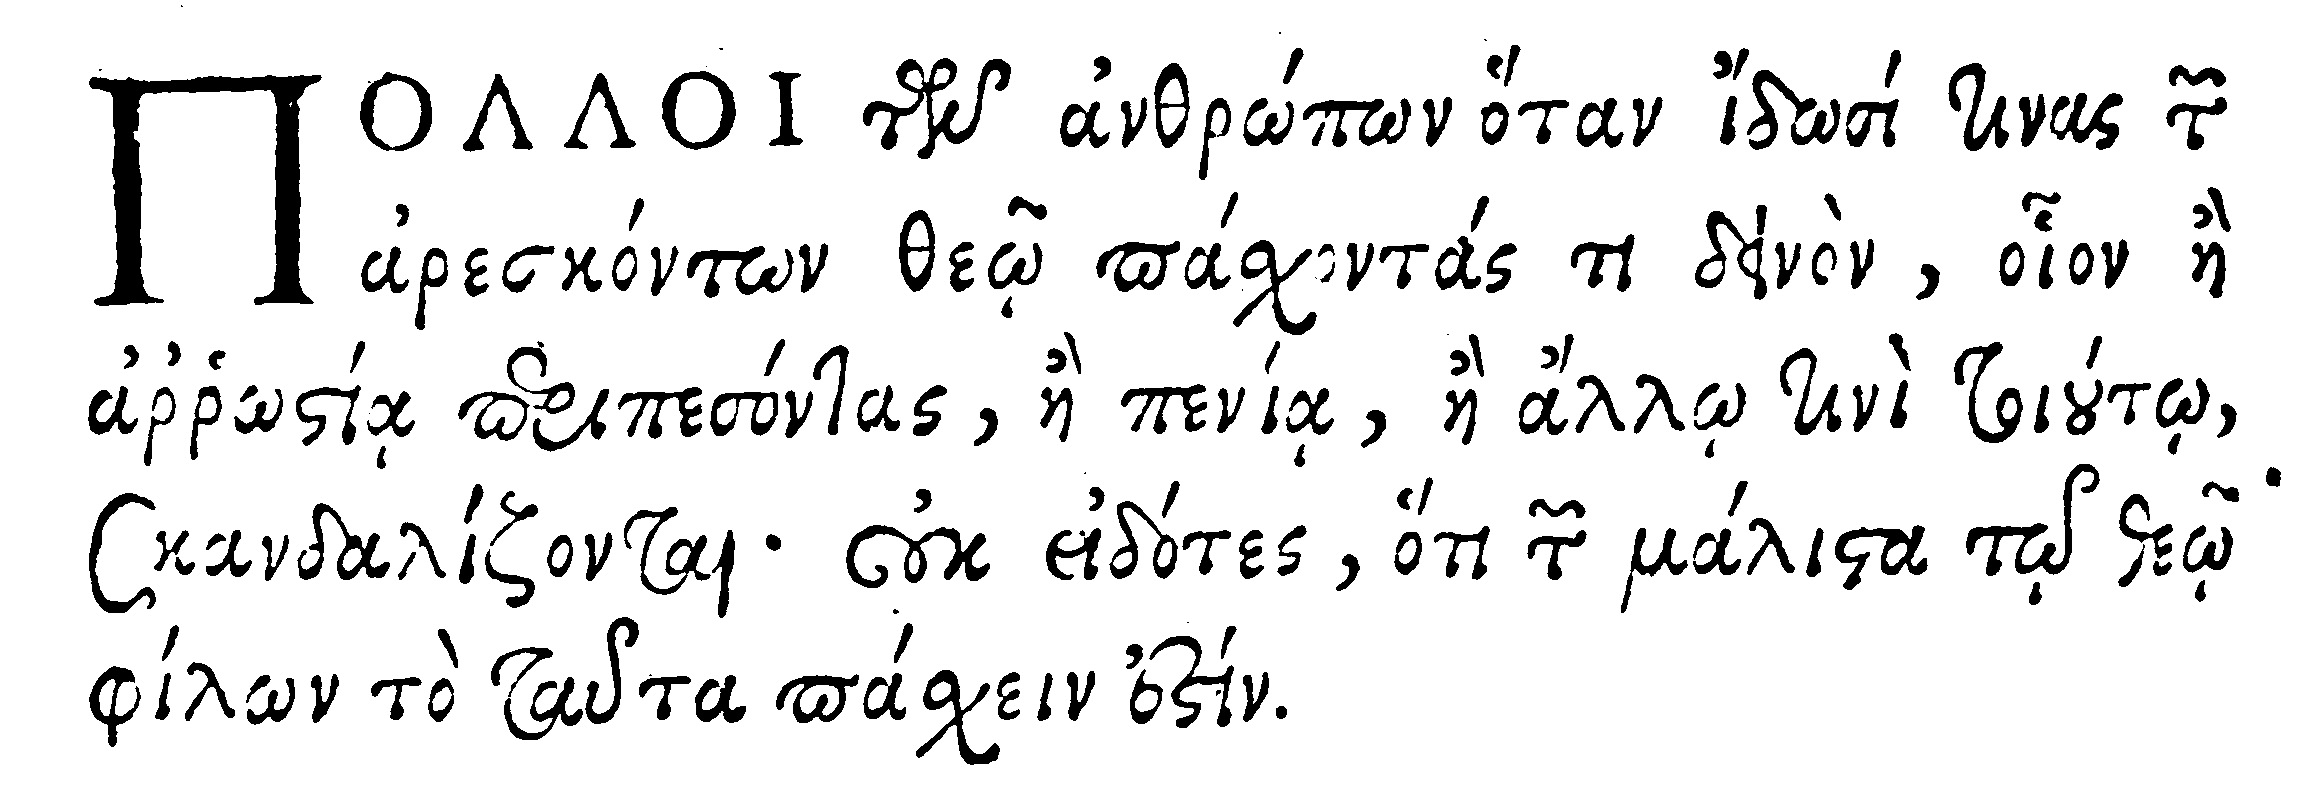 ΠΟΛΛΟΙ τῶν ἀνθρώπων ὅταν ἴδωσί τινας τῶν
ἀρεσκόντων θεῷ πάσχοντάς τι δεινὸν, οἷον ἢ
ἀῤῥωστίᾳ περιπεσόντας, ἢ πενίᾳ, ἢ ἄλλῳ τινὶ τοιούτῳ,
σκανδαλίζονται· οὐκ εἰδότες, ὅτι τῶν μάλιστα τῷ θεῷ
φίλων τὸ ταῦτα πάσχειν ἐστίν.